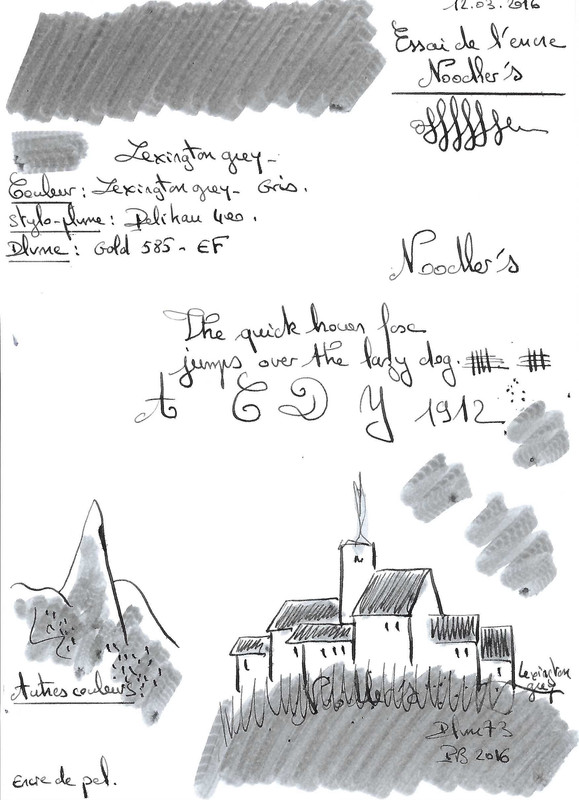 12.03.2016
Essai de l'encre
Noodler's
Lexington grey -
Couleur : Lexington grey - Gris.
Stylo-plume : Pelikan 400.
Plume : Gold 585 - EF
Noodler's
The quick brown fox
jumps over the lazy dog.
A C D Y 1912
Lexington
grey
Autres couleurs
Noodler's
Plume 73
PB 2016
Encre de pel.